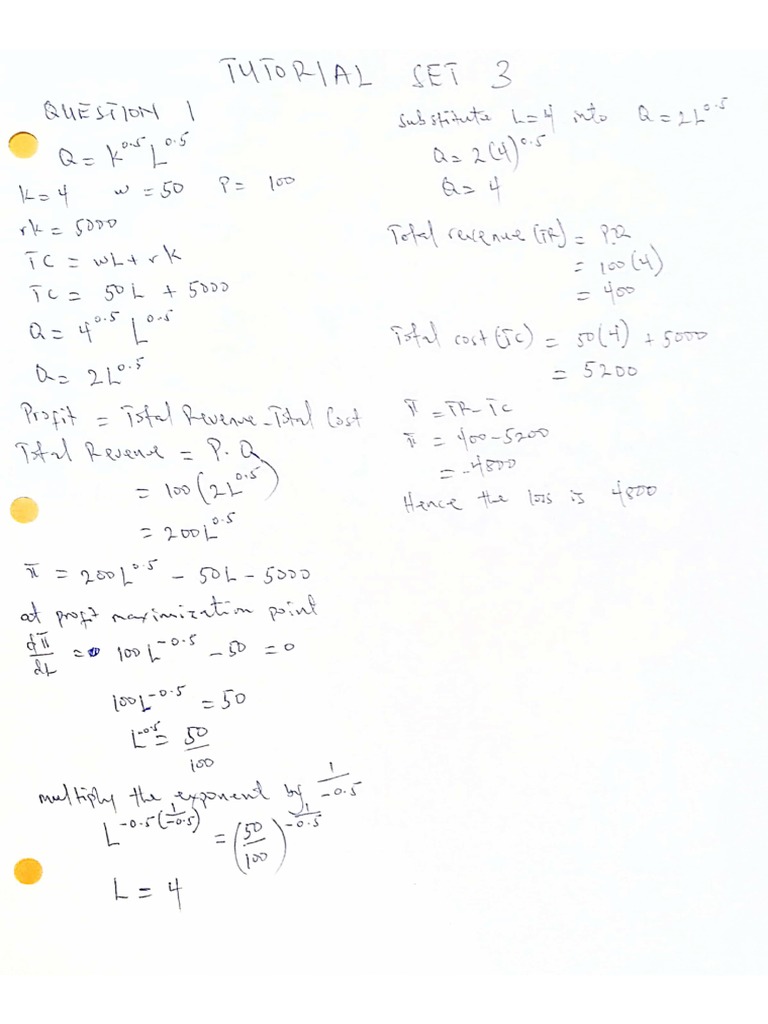 TUTORIAL SET 3
QUESTION 1
Q = K^0.5 L^0.5
K = 4 w = 50 P = 100
rk = 5000
TC = wL + rK
TC = 50L + 5000
Q = 4^0.5 L^0.5
Q = 2L^0.5
Profit = Total Revenue - Total Cost
Total Revenue = P. Q
= 100(2L^0.5)
= 200L^0.5
π = 200L^0.5 - 50L - 5000
at profit maximization point
dπ/dL = 100L^-0.5 - 50 = 0
100L^-0.5 = 50
L^-0.5 = 50/100
multiply the exponent by 1/-0.5
L^-0.5(1/-0.5) = (50/100)^1/-0.5
L = 4
Substitute L=4 into Q = 2L^0.5
Q = 2(4)^0.5
Q = 4
Total revenue (TR) = P.Q
= 100(4)
= 400
Total cost (TC) = 50(4) + 5000
= 5200
π = TR - TC
π = 400 - 5200
= -4800
Hence the loss is 4800